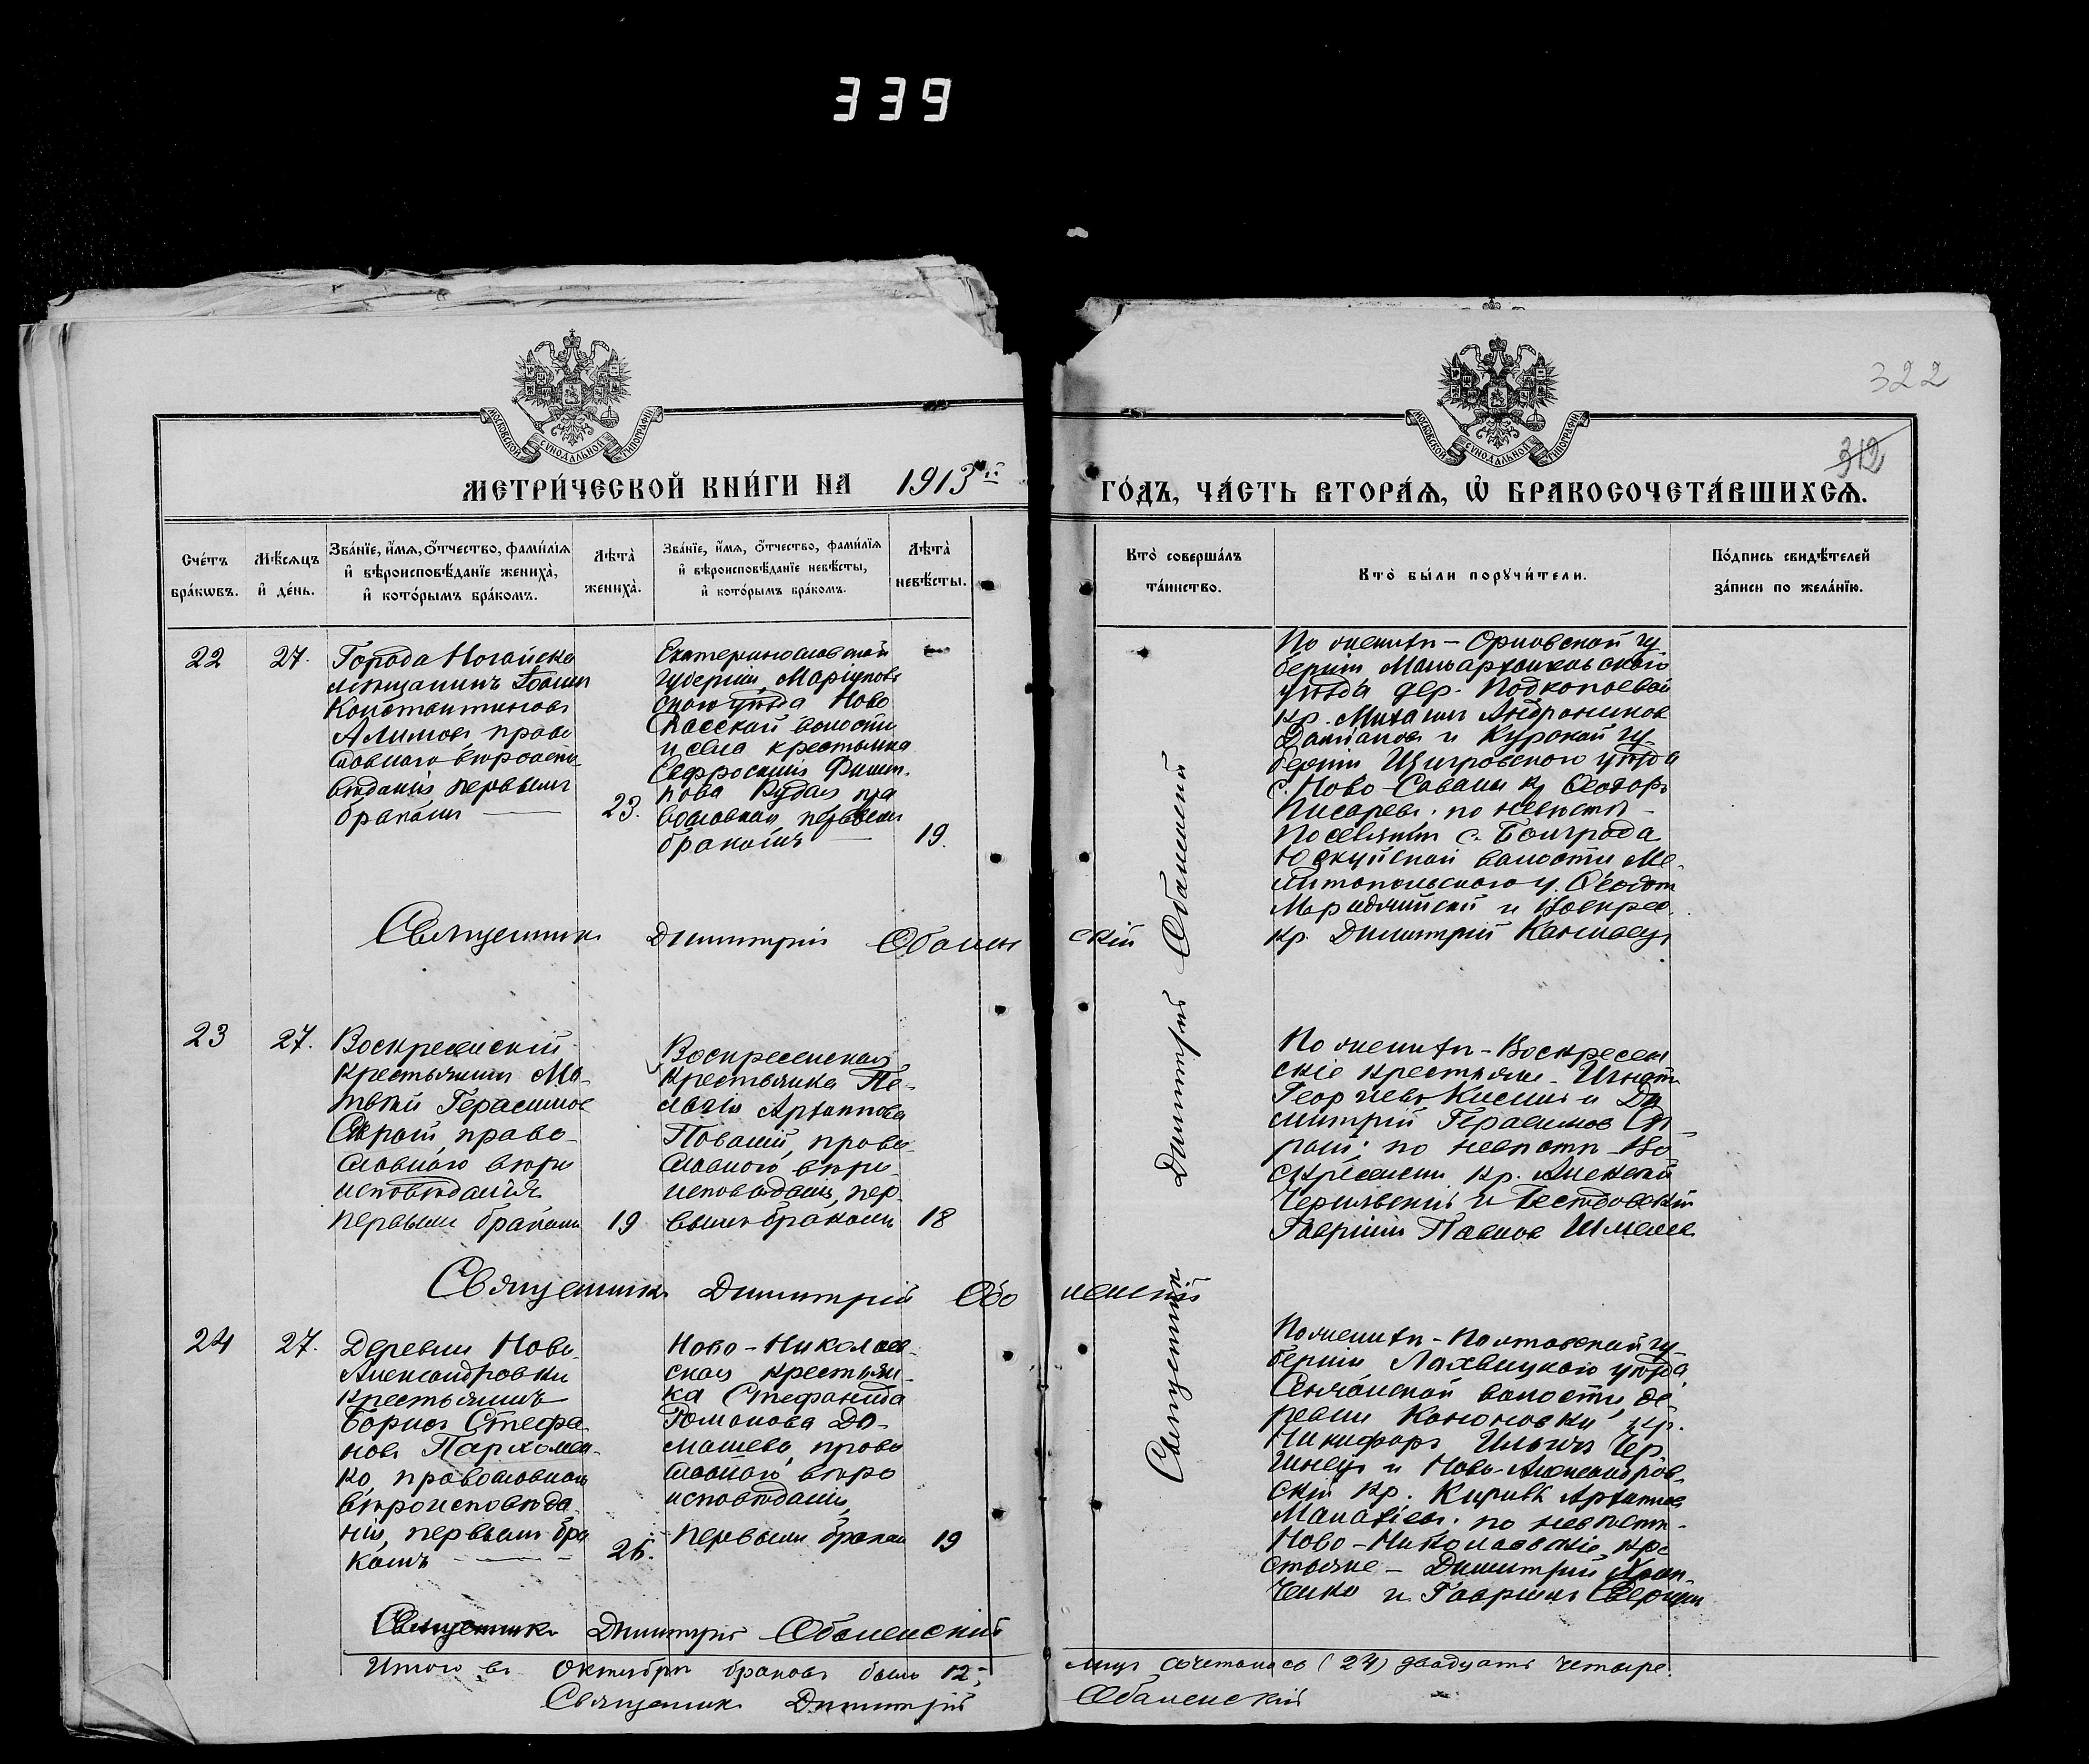 339
322
312
МОСКОВСКОЙ СѴНОДАЛЬНОЙ ТИПОГРАФІИ
МОСКОВСКОЙ СѴНОДАЛЬНОЙ ТИПОГРАФІИ
МЕТРИ́ЧЕСКОЙ КНИ́ГИ НА 1913й ГО́ДЪ, ЧА́СТЬ ВТОРА́Ѧ, Ѽ БРАКОСОЧЕТА́ВШИХСѦ.
Сче́тъ бра́кѡвъ.
Мѣ́сѧцъ и҆ де́нь.
Зва́нїе, и҆́мѧ, ѻ҆́тчество, фами́лїѧ
и҆ вѣроисповѣ́данїе жениха̀,
и҆ кото́рымъ бра́комъ.
Лѣта̀ жениха̀.
Зва́нїе, и҆́мѧ, ѻ҆́тчество, фами́лїѧ
и҆ вѣроисповѣ́данїе невѣ́сты,
и҆ кото́рымъ бра́комъ.
Лѣта̀ невѣ́сты.
Кто̀ соверша́лъ та́инство.
Кто̀ бы́ли порꙋчи́тели.
По́дпись свидѣ́телей
за́писи по жела́нїю.
22
27.
Города Ногайска
мѣщанинъ Іоаннъ
Константиновъ
Алимовъ, право
славнаго вѣроиспо
вѣданія первымъ
бракомъ
23.
Екатеринославской
губерніи, Маріупольс
скаго уѣзда Ново
Спасской волости
и села крестьянка
Евфросинія Филип.
пова Кудас пра
вославная первымъ
бракомъ
19.
По женихѣ - Орловской гу
берніи Малоархангельскаго
уѣзда дер. Подкопаевой
кр. Михаилъ Андрониковъ
и Курской гу
берніи Щигровскаго уѣзда
с. Ново-Савины кр Ѳеодоръ
Писаревъ. по невѣстѣ -
Поселянин с. Болграда
волости Ме
литопольскаго у. Ѳеодотъ
и Воскрес.
кр. Димитрій
Священникъ Димитрій Оболенскій
23
27.
Воскресенскій
крестьянинъ Ма-
твѣй Герасимов
Сѣрый, право-
славнаго вѣро
исповѣданія
первымъ бракомъ
19
Воскресенская
крестьянка Пе-
лагія Архиппова
право-
славнаго вѣро-
исповѣданія, пер-
вымъ бракомъ
18
По женихѣ - Воскресен
скіе крестьяне - Игнатъ
Георгіевъ Кислый и Ди
митрій Герасимов Сѣ
рый; по невѣстѣ - Во
скресенскій кр. Алексѣй
Чернявскій и
Гавріилъ Павлов
Священникъ Димитрій Оболенскій
24
27.
Деревни Ново-
Александровки
крестьянинъ
Борисъ Стефа
новъ Пархомен-
ко, православнаго
вѣроисповѣда
нія, первымъ бра
комъ
26.
Ново-Николаев-
ская крестьян-
ка Стефанида
Романова До-
машева, право
славнаго вѣро
исповѣданія,
первымъ бракомъ
19
По женихѣ - Полтавской гу
берніи Лохвицкаго уѣзда,
Сенчанской волости, де
ревни кр.
Никифоръ Ильинъ
и Ново-Александров-
скій кр. Кириллъ Архиппов
по невѣстѣ -
Ново-Николаевскіе кре
стьяне - Димитрій
и Гавріилъ
Священникъ Димитрій Оболенскій
Священникъ Димитрій Оболенскій
Итого въ Октябрѣ браковъ было 12, лицъ сочеталось (24) двадцать четыре.
Священникъ Димитрій Оболенскій